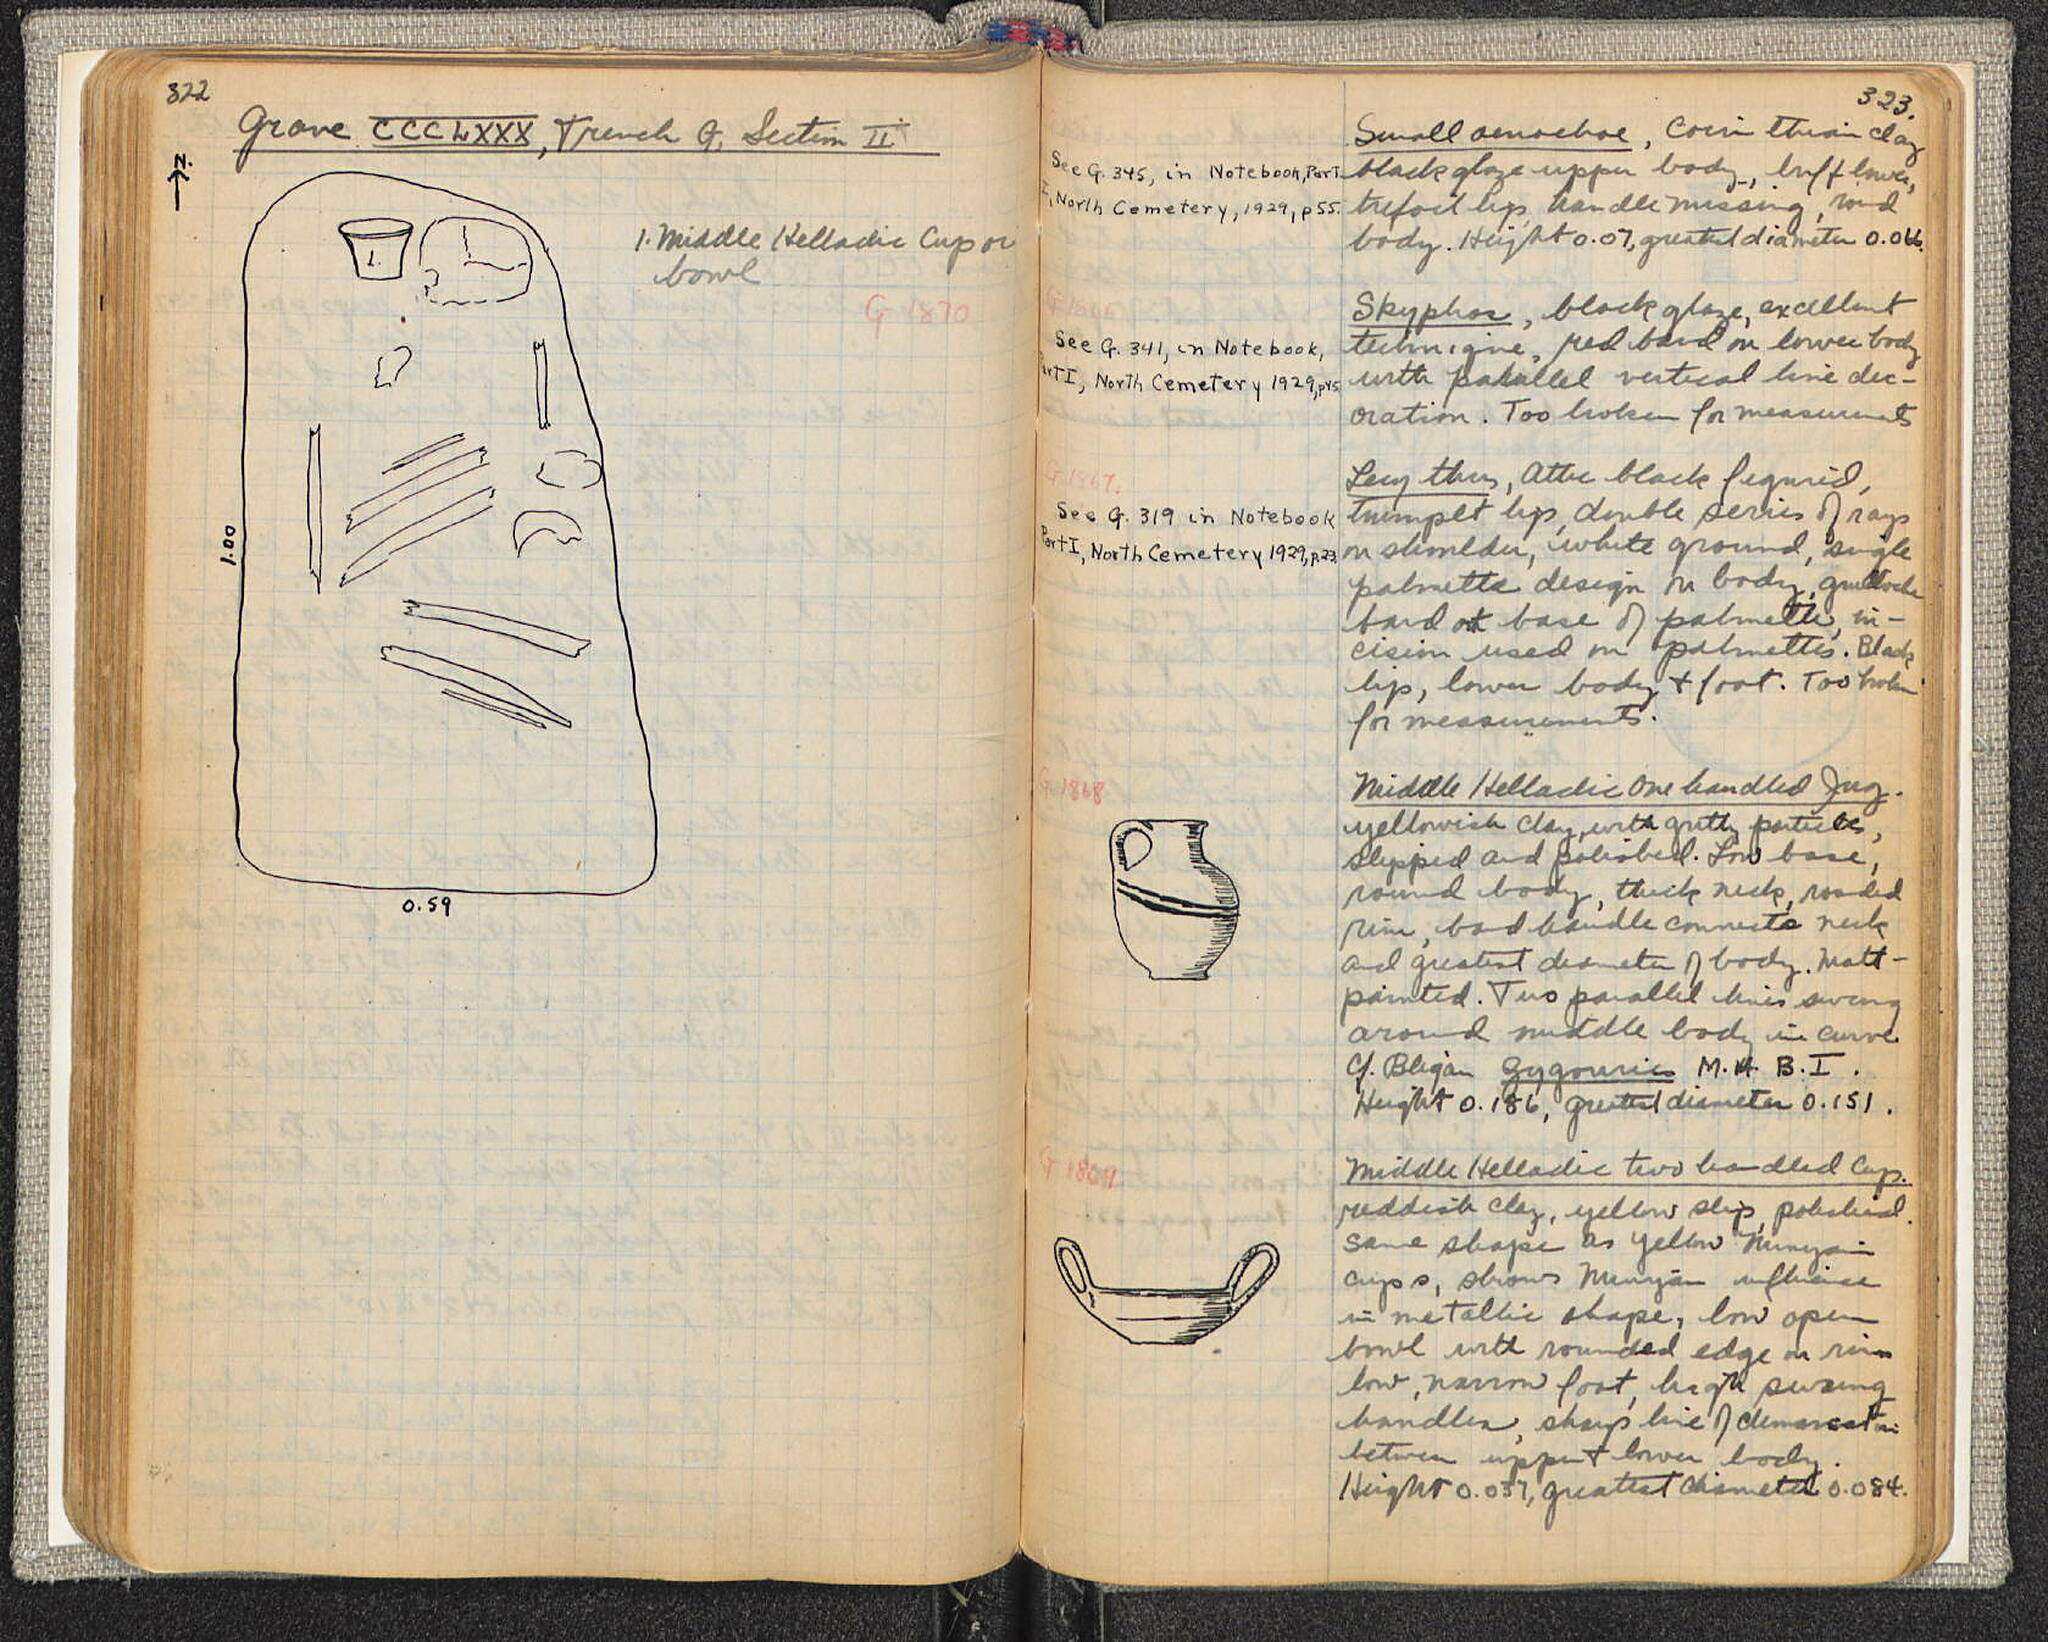 322
Grave CCCLXXX, Trench G, Section II
N.
1.
1. Middle Helladic Cup or
bowl
G 1870
1.00
0.59
323.
Small oenochoe, Corinthian clay
black glaze upper body, buff lower,
trefoil lip, handle missing, round
body. Height 0.07, greatest diameter 0.066.
See G. 345, in Notebook, Part
I, North Cemetery, 1929, p 55.
Skyphos, black glaze, excellent
technique, red band on lower body
with parallel vertical line dec-
oration. Too broken for measurements
G 1866
See G. 341, in Notebook,
Part I, North Cemetery 1929, p45.
Lecythus, Attic black figured,
trumpet lip, double series of rays
on shoulder, white ground, single
palmette design on body, guilloche
band at base of palmette, in-
cision used on palmettes. Black
lip, lower body & foot. Too broken
for measurements.
G 1867.
See G. 319 in Notebook
Part I, North Cemetery 1929, p. 23.
Middle Helladic One handled Jug.
yellowish clay, with gritty particles,
slipped and polished. Low base,
round body, thick neck, rounded
rim, band handle connects neck
and greatest diameter of body. Matt-
painted. Two parallel lines swing
around middle body in curve.
Cf. Blegan Zygouries M.H. B.I.
Height 0.186, greatest diameter 0.151.
G 1868
Middle Helladic two handled Cup.
reddish clay, yellow slip, polished.
same shape as yellow Minyan
cups, shows Minyan influence
in metallic shape, low open
bowl with rounded edge on rim
low, narrow foot, high swung
handles, sharp line of demarcation
between upper & lower body.
Height 0.037, greatest diameter 0.084.
G 1869